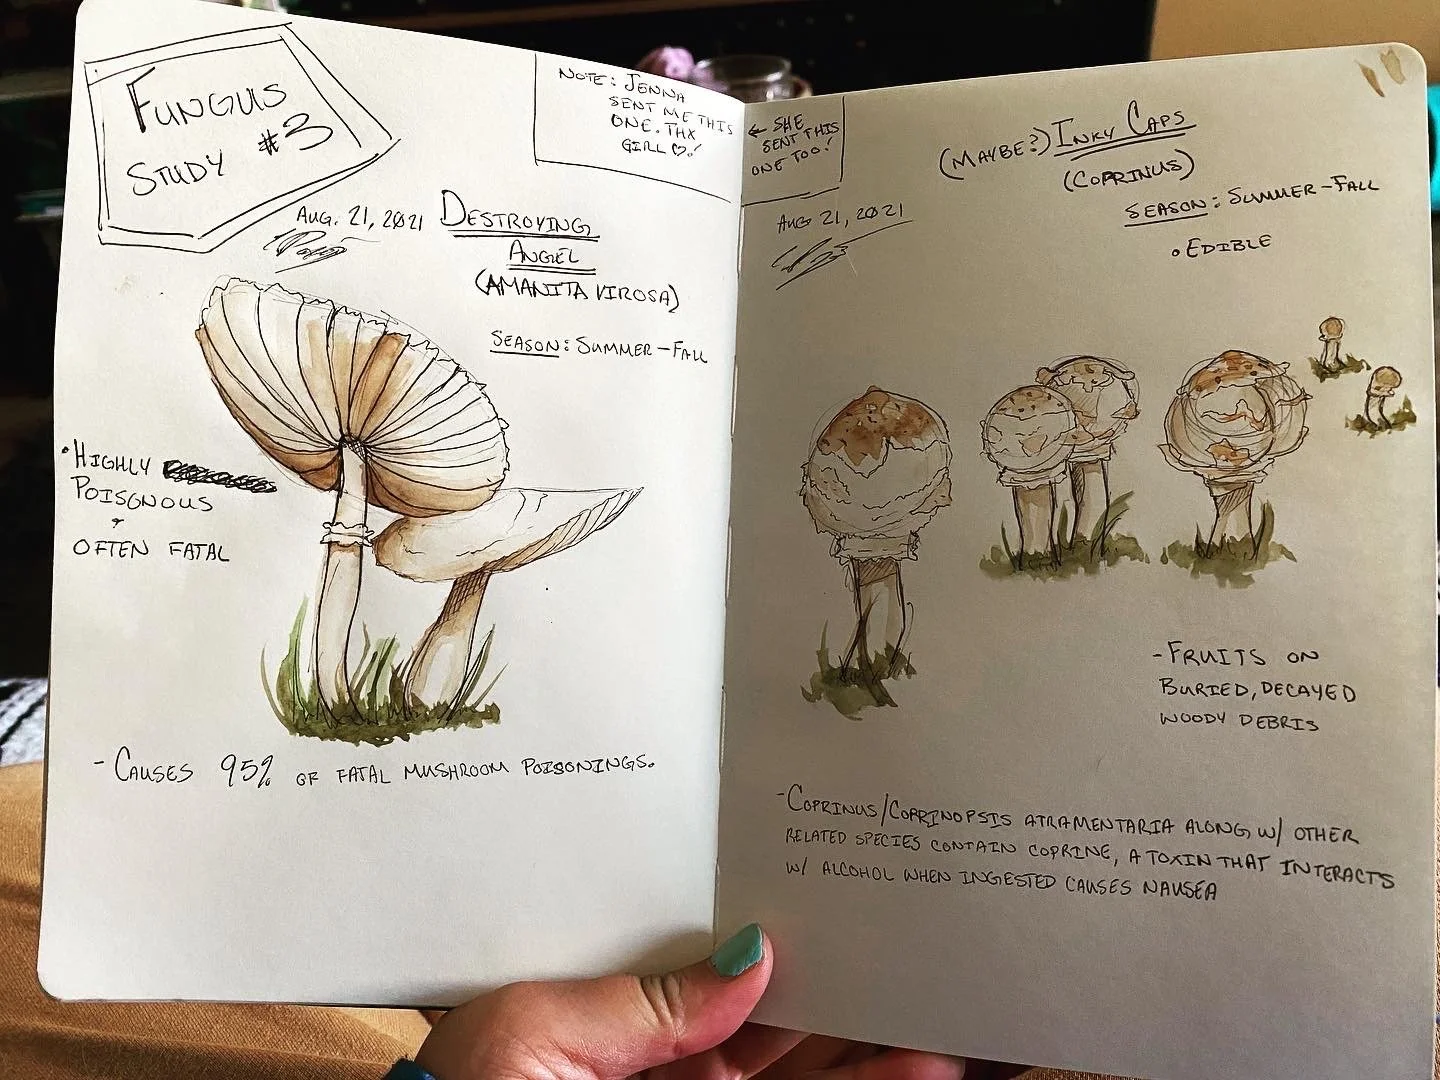 FUNGUS
STUDY #3
NOTE: JENNA
SENT ME THIS
ONE. THX
GIRL ♡!
AUG. 21, 2021
DESTROYING
ANGEL
(AMANITA VIROSA)
SEASON: SUMMER-FALL
• HIGHLY
POISONOUS
+
OFTEN FATAL
- CAUSES 95% OF FATAL MUSHROOM POISONINGS.
← SHE
SENT THIS
ONE TOO!
AUG 21, 2021
(MAYBE?) INKY CAPS
(COPRINUS)
SEASON: SUMMER-FALL
• EDIBLE
- FRUITS ON
BURIED, DECAYED
WOODY DEBRIS
- COPRINUS/COPRINOPSIS ATRAMENTARIA ALONG W/ OTHER
RELATED SPECIES CONTAIN COPRINE, A TOXIN THAT INTERACTS
W/ ALCOHOL WHEN INGESTED CAUSES NAUSEA